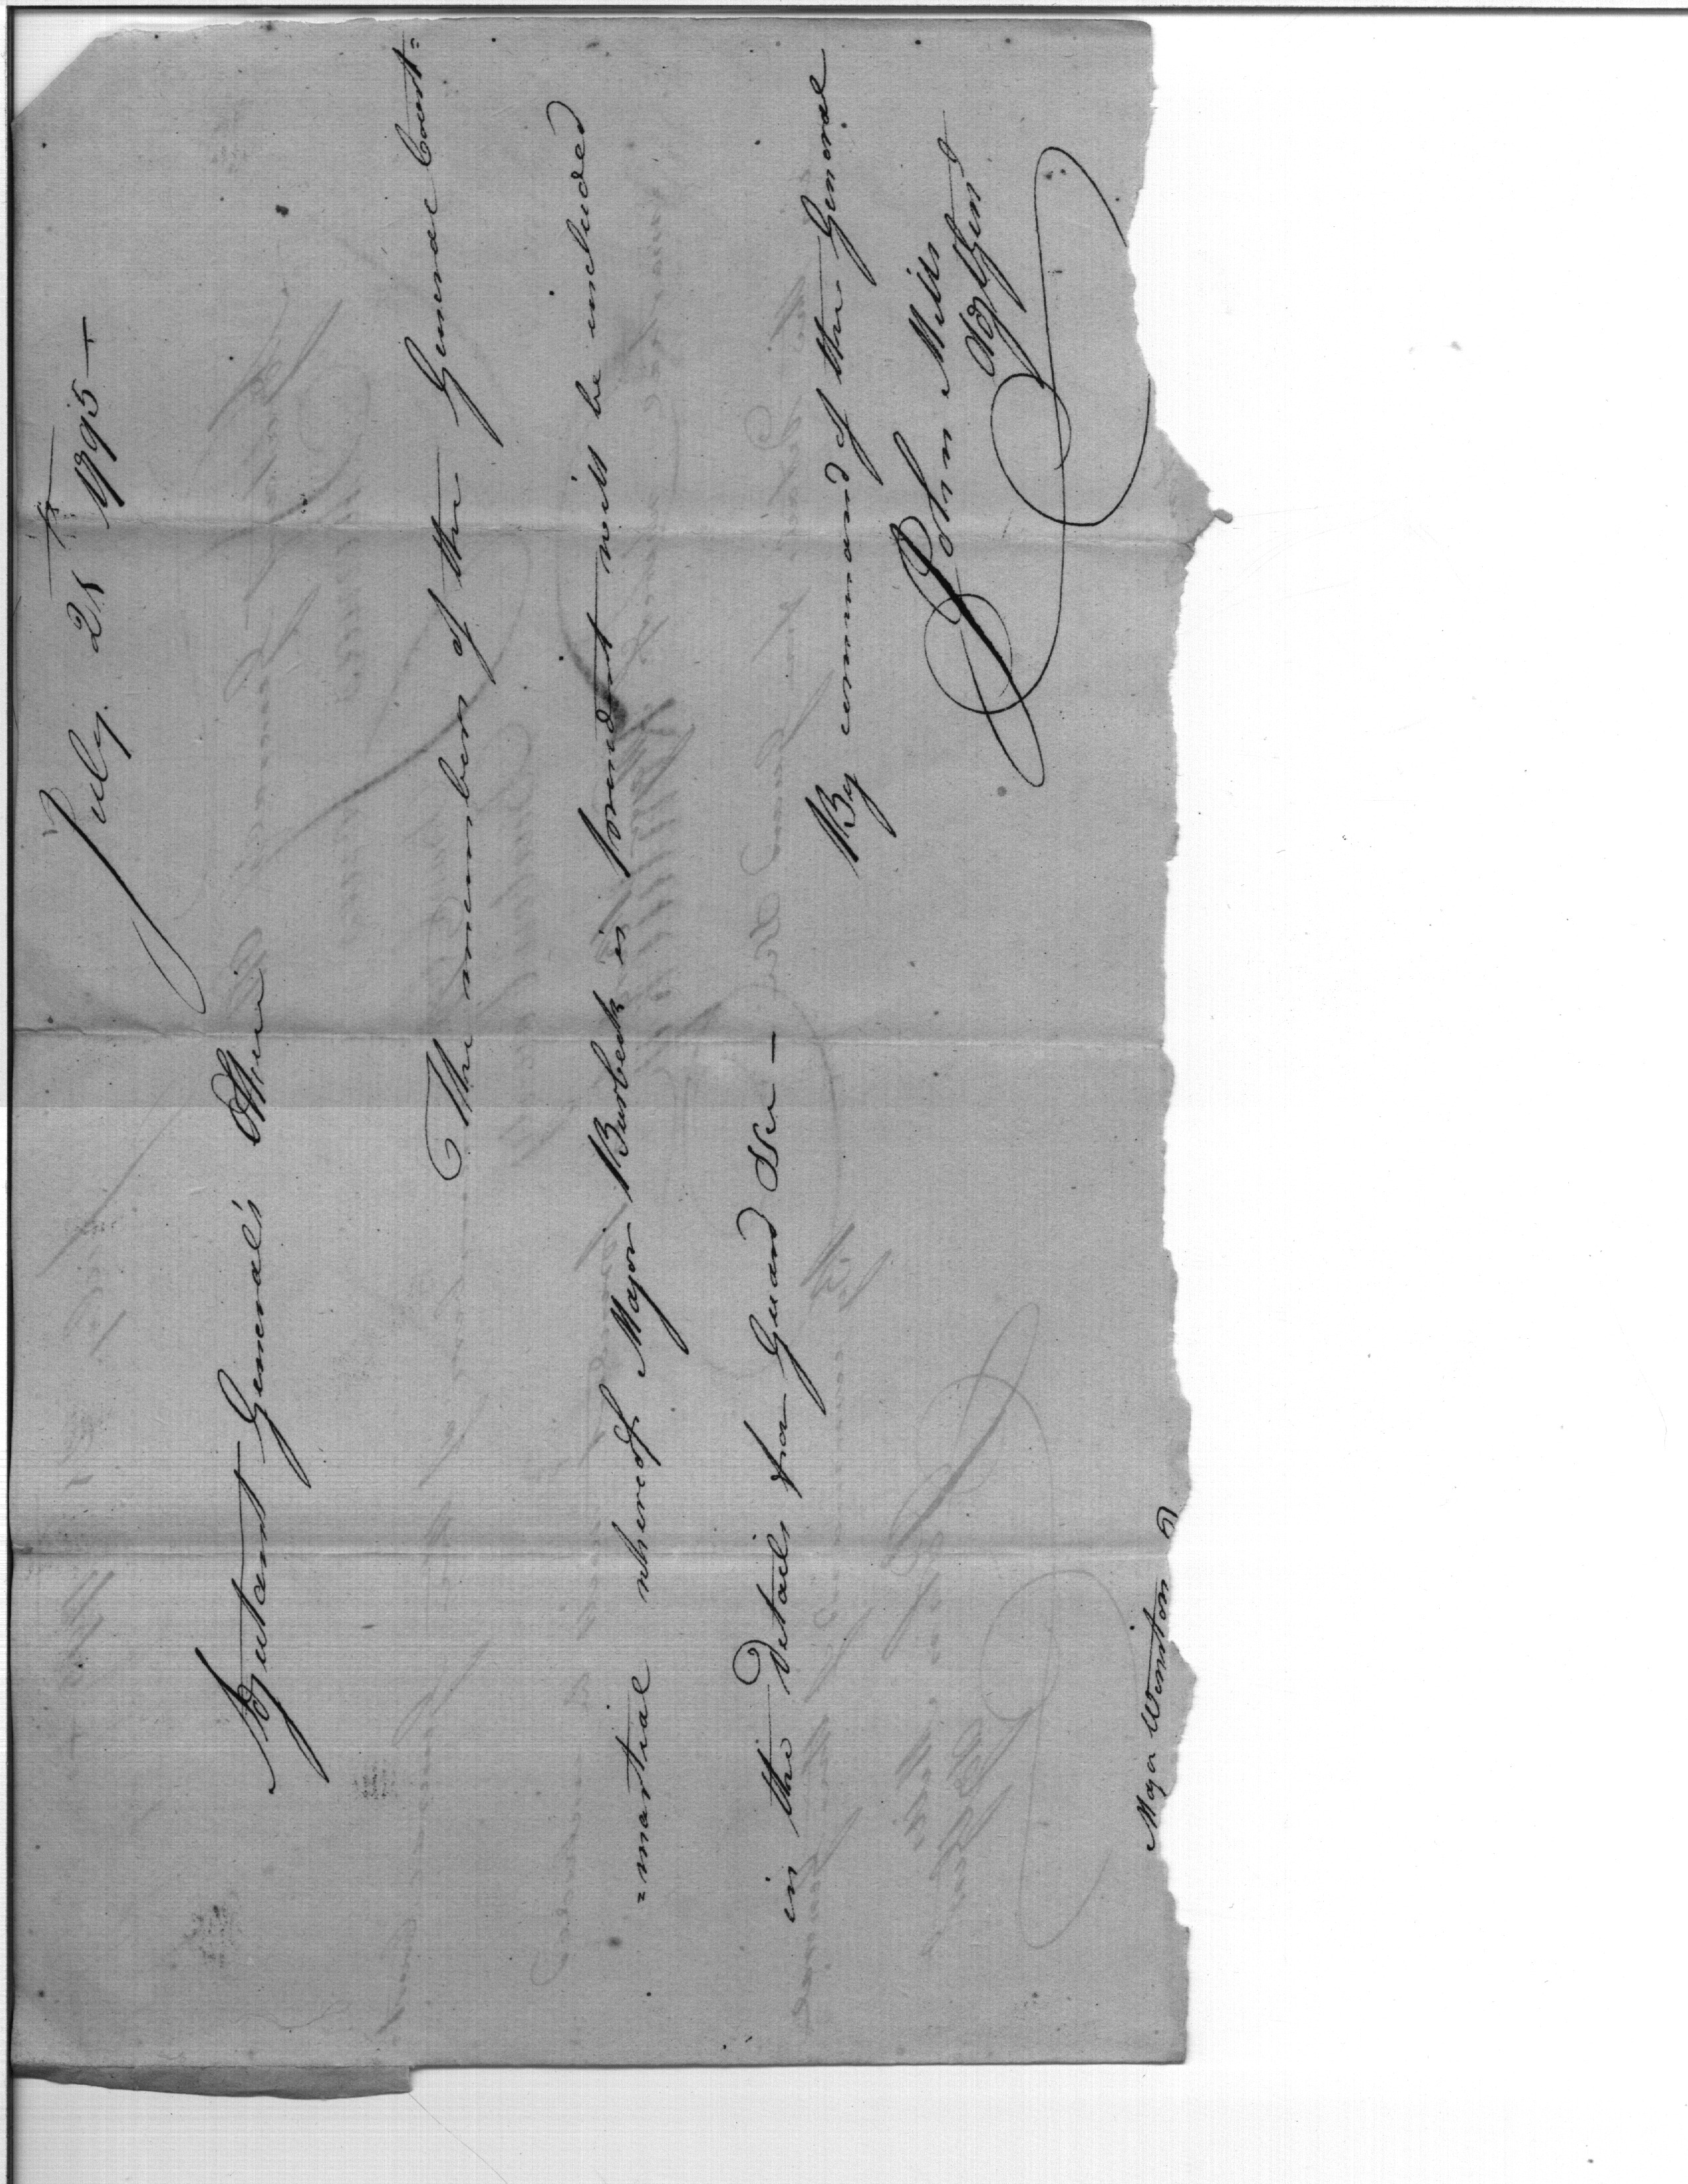 July 28th 1795—
Adjutant General's Office
The members of the General Court=
=martial whereof Major Burbeck is president will be included
in the Details for Guard &c —
By command of the General
John Mills
Adjt Genl
Major Winston